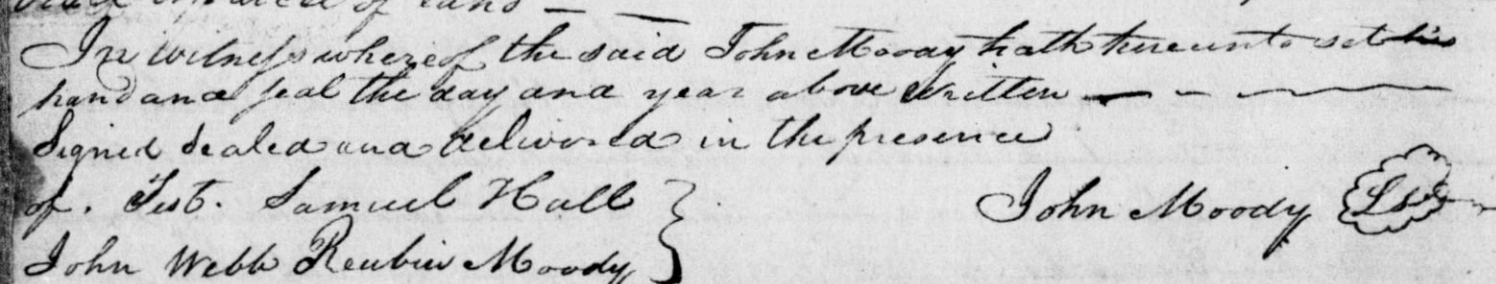 of land
In witness whereof the said John Moody hath hereunto set his
hand and seal the day and year above written
Signed Sealed and delivered in the presence
of. Test. Samuel Hall John Moody LS
John Webb Reubin Moody